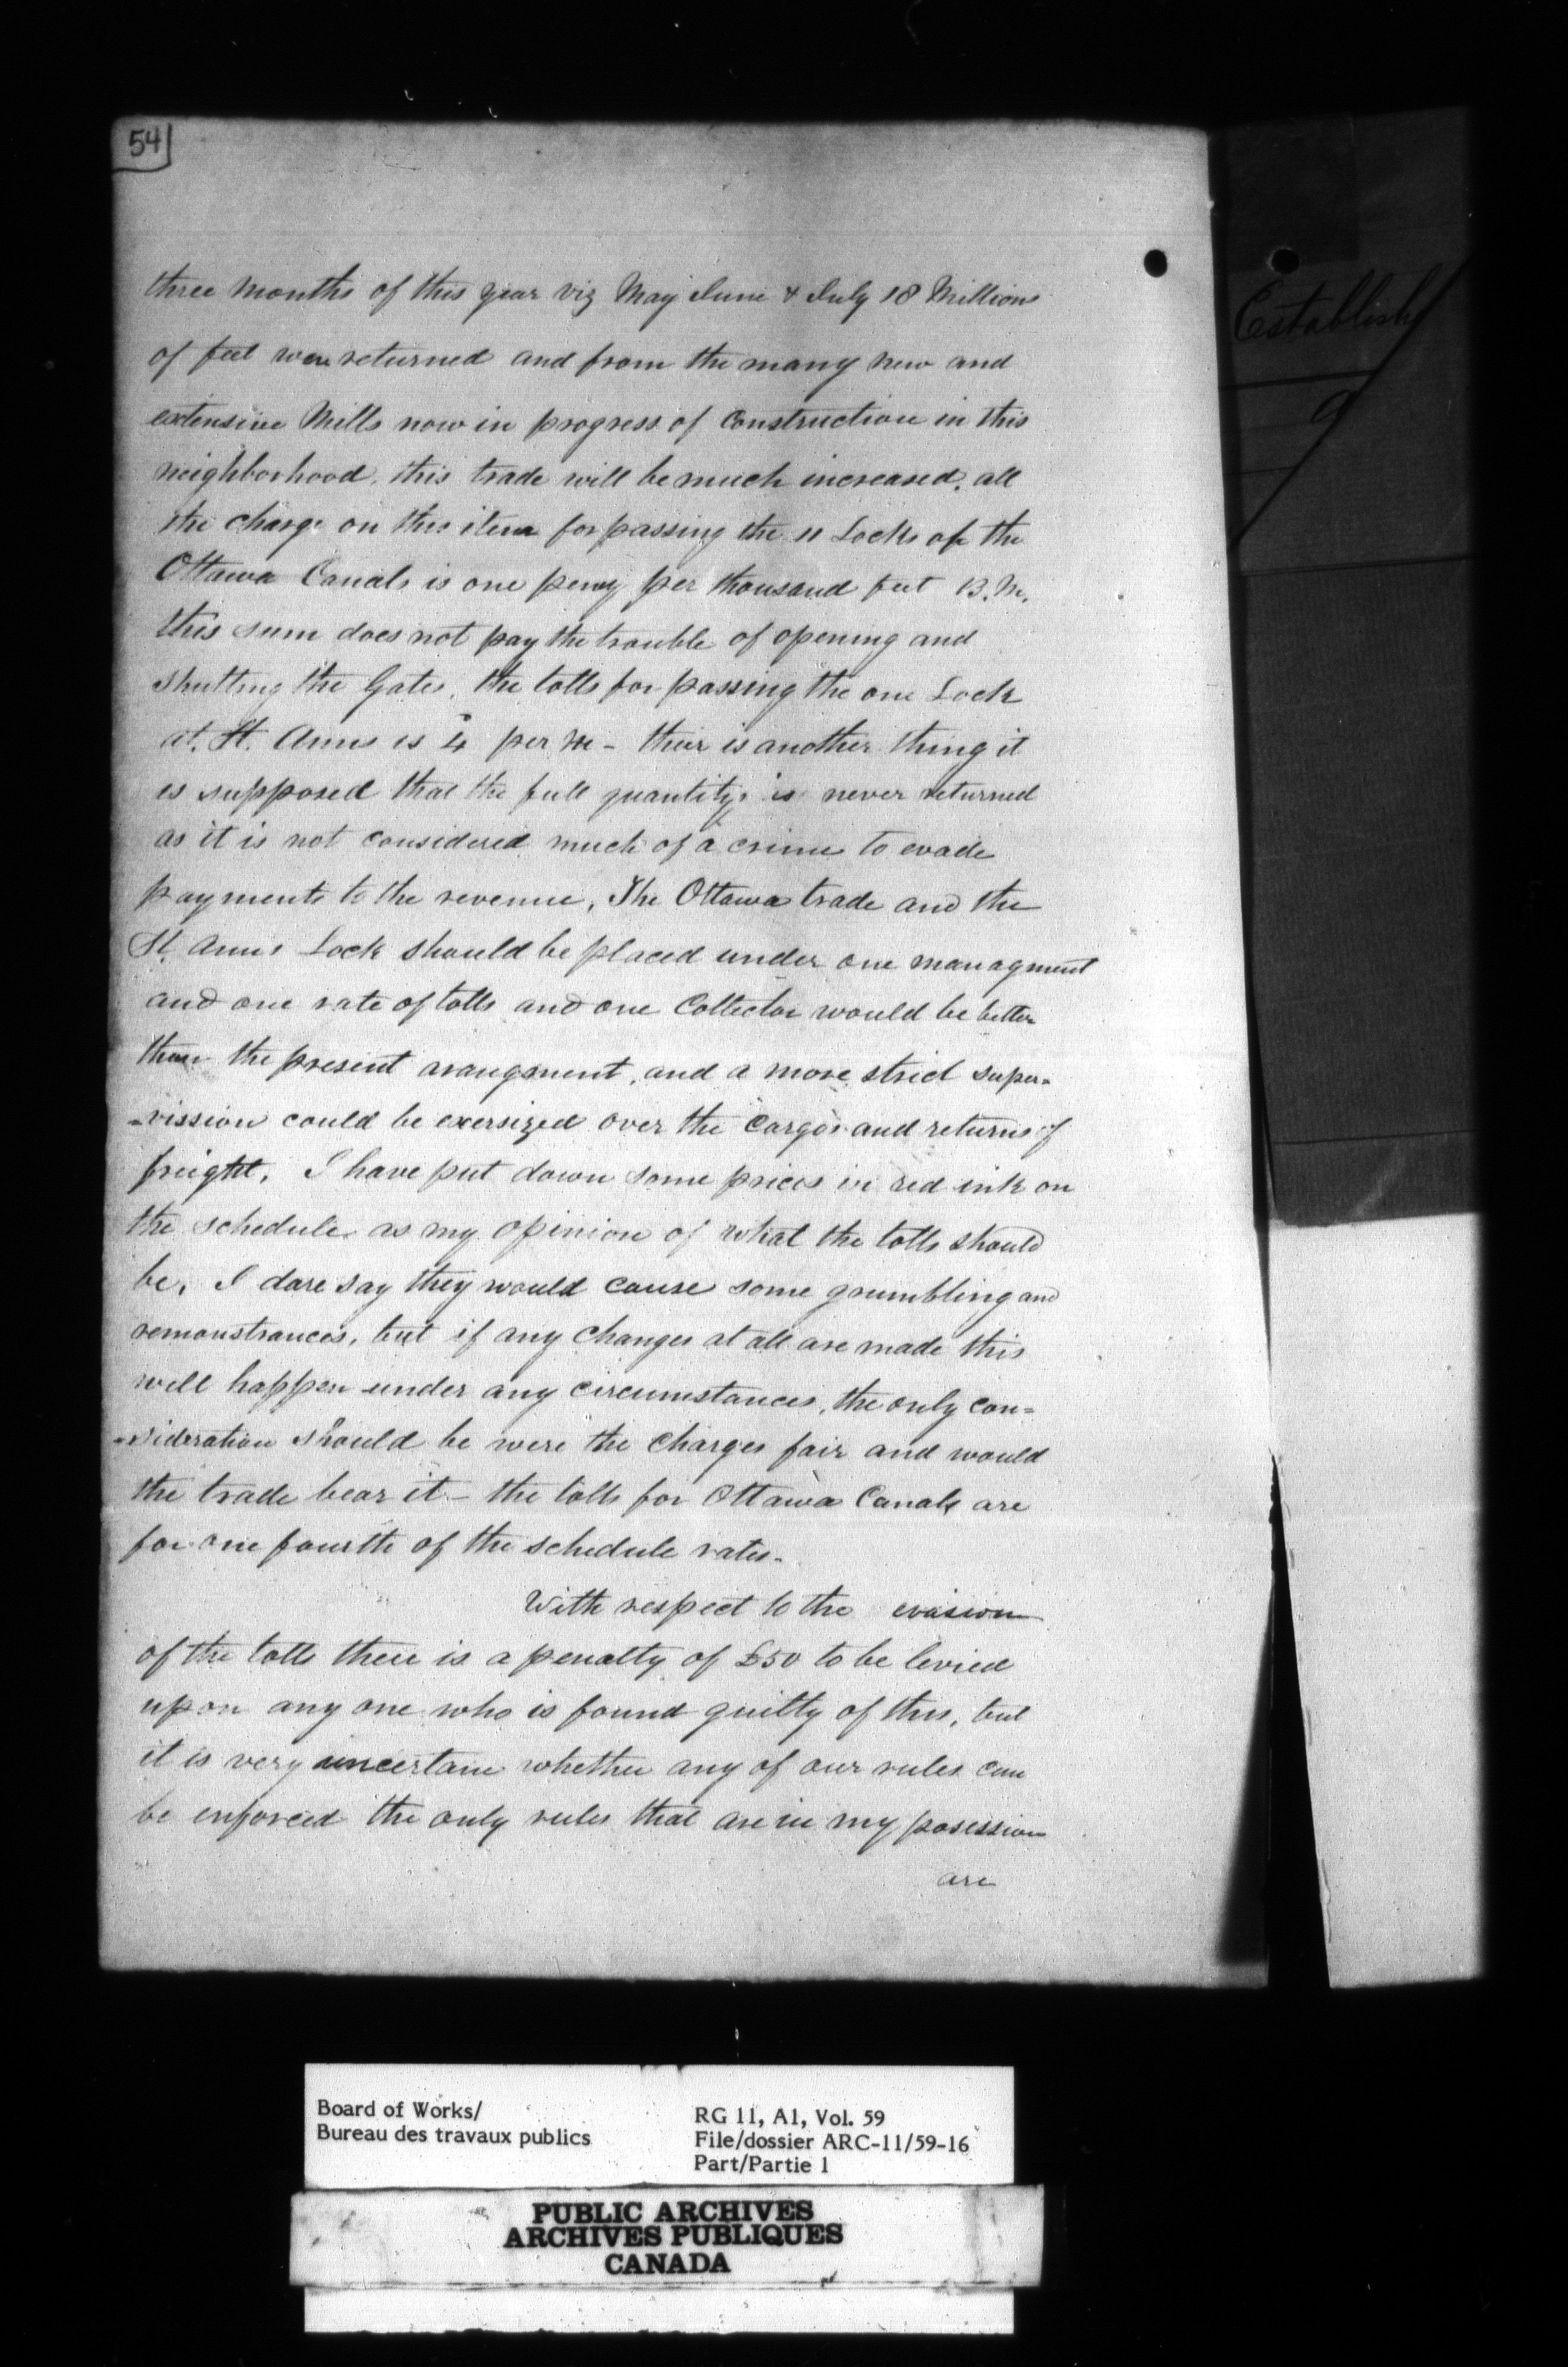 54
three months of this year viz May June & July 18 Millions
of feet were returned and from the many new and
extensive Mills now in progress of Construction in this
neighborhood, this trade will be much increased, all
the charge on this item for passing the 11 Locks of the
Ottawa Canals is one penny per thousand feet B.M.
this sum does not pay the trouble of opening and
shutting the Gates, the tolls for passing the one Lock
at St. Anns is 4 per M - their is another thing it
is supposed that the full quantity is never returned
as it is not considered much of a crime to evade
payments to the revenue, The Ottawa trade and the
St. Anns Lock should be placed under one managment
and one rate of tolls and one Collector would be better
than the present arangment, and a more strict super=
=vission could be exersized over the Cargos and returns of
freight, I have put down some prices in red ink on
the schedule as my opinion of what the tolls should
be, I dare say they would cause some grumbling and
remonstrances, but if any changes at all are made this
will happen under any circumstances, the only con=
=sideration should be were the Charges fair and would
the trade bear it - the tolls for Ottawa Canals are
for one fourth of the schedule rates.
With respect to the evasion
of the tolls there is a penalty of £50 to be levied
upon any one who is found guilty of this, but
it is very uncertain whether any of our rules can
be enforced the only rules that are in my posession
are
Establish
9
Board of Works/
Bureau des travaux publics
RG 11, A1, Vol. 59
File/dossier ARC-11/59-16
Part/Partie 1
PUBLIC ARCHIVES
ARCHIVES PUBLIQUES
CANADA